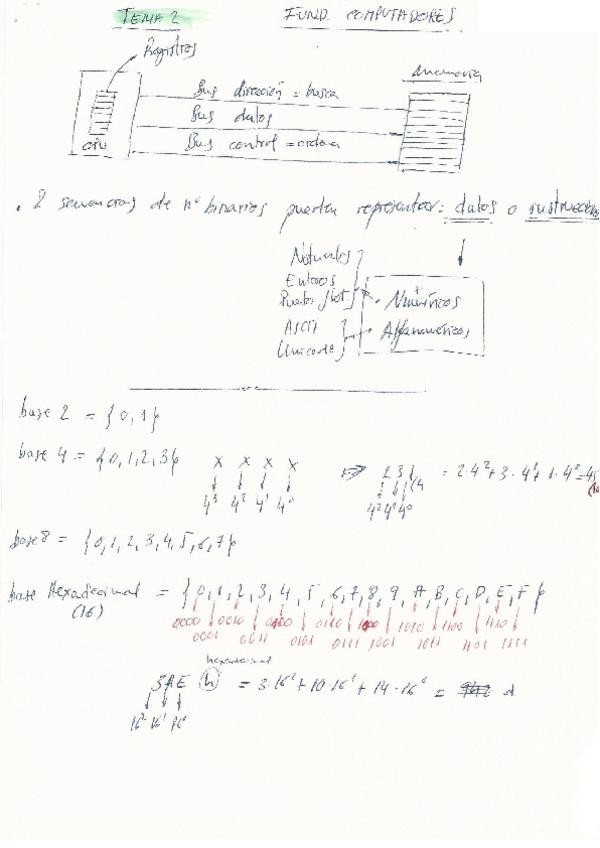 TEMA 2 FUND. COMPUTADORES
Registros
memoria
Bus dirección = busca
Bus datos
CPU
Bus control = ordena
. 2 secuencias de nº binarios pueden representar: datos o
Naturales
Enteros
Punto flot. . Numéricos
ASCII . Alfanuméricos
Unicode
base 2 = {0,1}
base 4 = {0,1,2,3} x x x x => 231(4 = 2·4²+3·4¹+1·4⁰=45
4³ 4² 4¹ 4⁰ 4² 4¹ 4⁰
base 8 = {0,1,2,3,4,5,6,7}
base Hexadecimal = {0,1,2,3,4,5,6,7,8,9,A,B,C,D,E,F}
(16) 0000 0010 0100 0110 1000 1010 1100 1110
0001 0011 0101 0111 1001 1011 1101 1111
hexadecimal
3AE h = 3·16²+10·16¹+14·16⁰ = d
16² 16¹ 16⁰